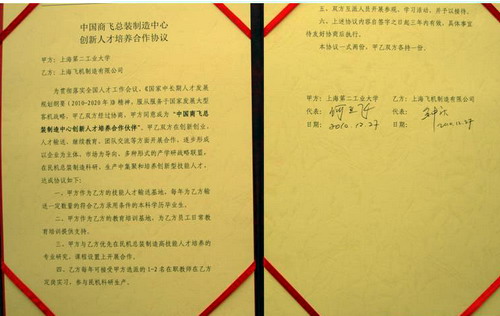 中国商飞总装制造中心
创新人才培养合作协议
甲方：上海第二工业大学
乙方：上海飞机制造有限公司
为贯彻落实全国人才工作会议、《国家中长期人才发展
规划纲要（2010-2020年）》精神，服从服务于国家发展大型
客机战略，甲乙双方经过协商，甲方同意成为“中国商飞总
装制造中心创新人才培养合作伙伴”。甲乙双方在创新创业、
人才输送、继续教育、团队交流等方面开展合作，逐步形成
以企业为主体、市场为导向、多种形式的产学研战略联盟，
在民机总装制造科研、生产中集聚和培养创新型技能人才。
达成协议如下：
一、甲方作为乙方的技能人才输送基地，每年为乙方输
送一定数量的符合乙方录用条件的本科学历毕业生。
二、甲方作为乙方的教育培训基地，为乙方员工日常教
育培训提供支持。
三、甲方与乙方优先在民机总装制造高技能人才培养的
专业研究、课程设置上开展合作。
四、乙方每年可接受甲方选派的1-2名在职教师在乙方
现场实习，参与民机科研生产。
五、双方互派人员开展参观、学习活动，并予以接待。
六、上述协议内容自签字之日起三年内有效，具体事宜
待友好协商后执行。
本协议一式两份，甲乙双方各持一份。
甲方：上海第二工业大学 乙方：上海飞机制造有限公司
代表： 代表：
日期：2010.12.27 日期：2010.12.27